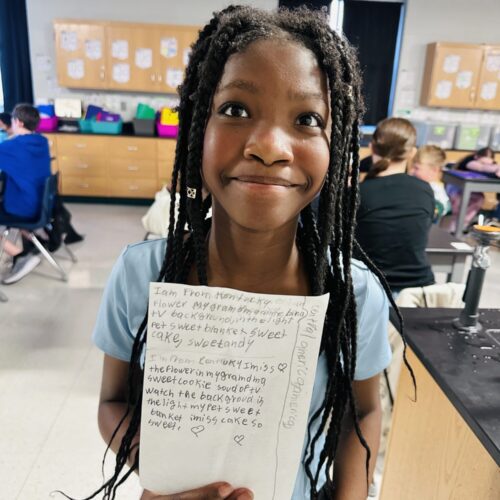 I am From Kentucky
flower My grandma
TV background in the light
Pet sweet blanket sweet
cake, sweet
I m From Kentucky I miss
the Flower in my grandma
sweet cookie soud of tv
Watch the backgroud is
the light my Pet sweet
banket imiss cake so
sweet.